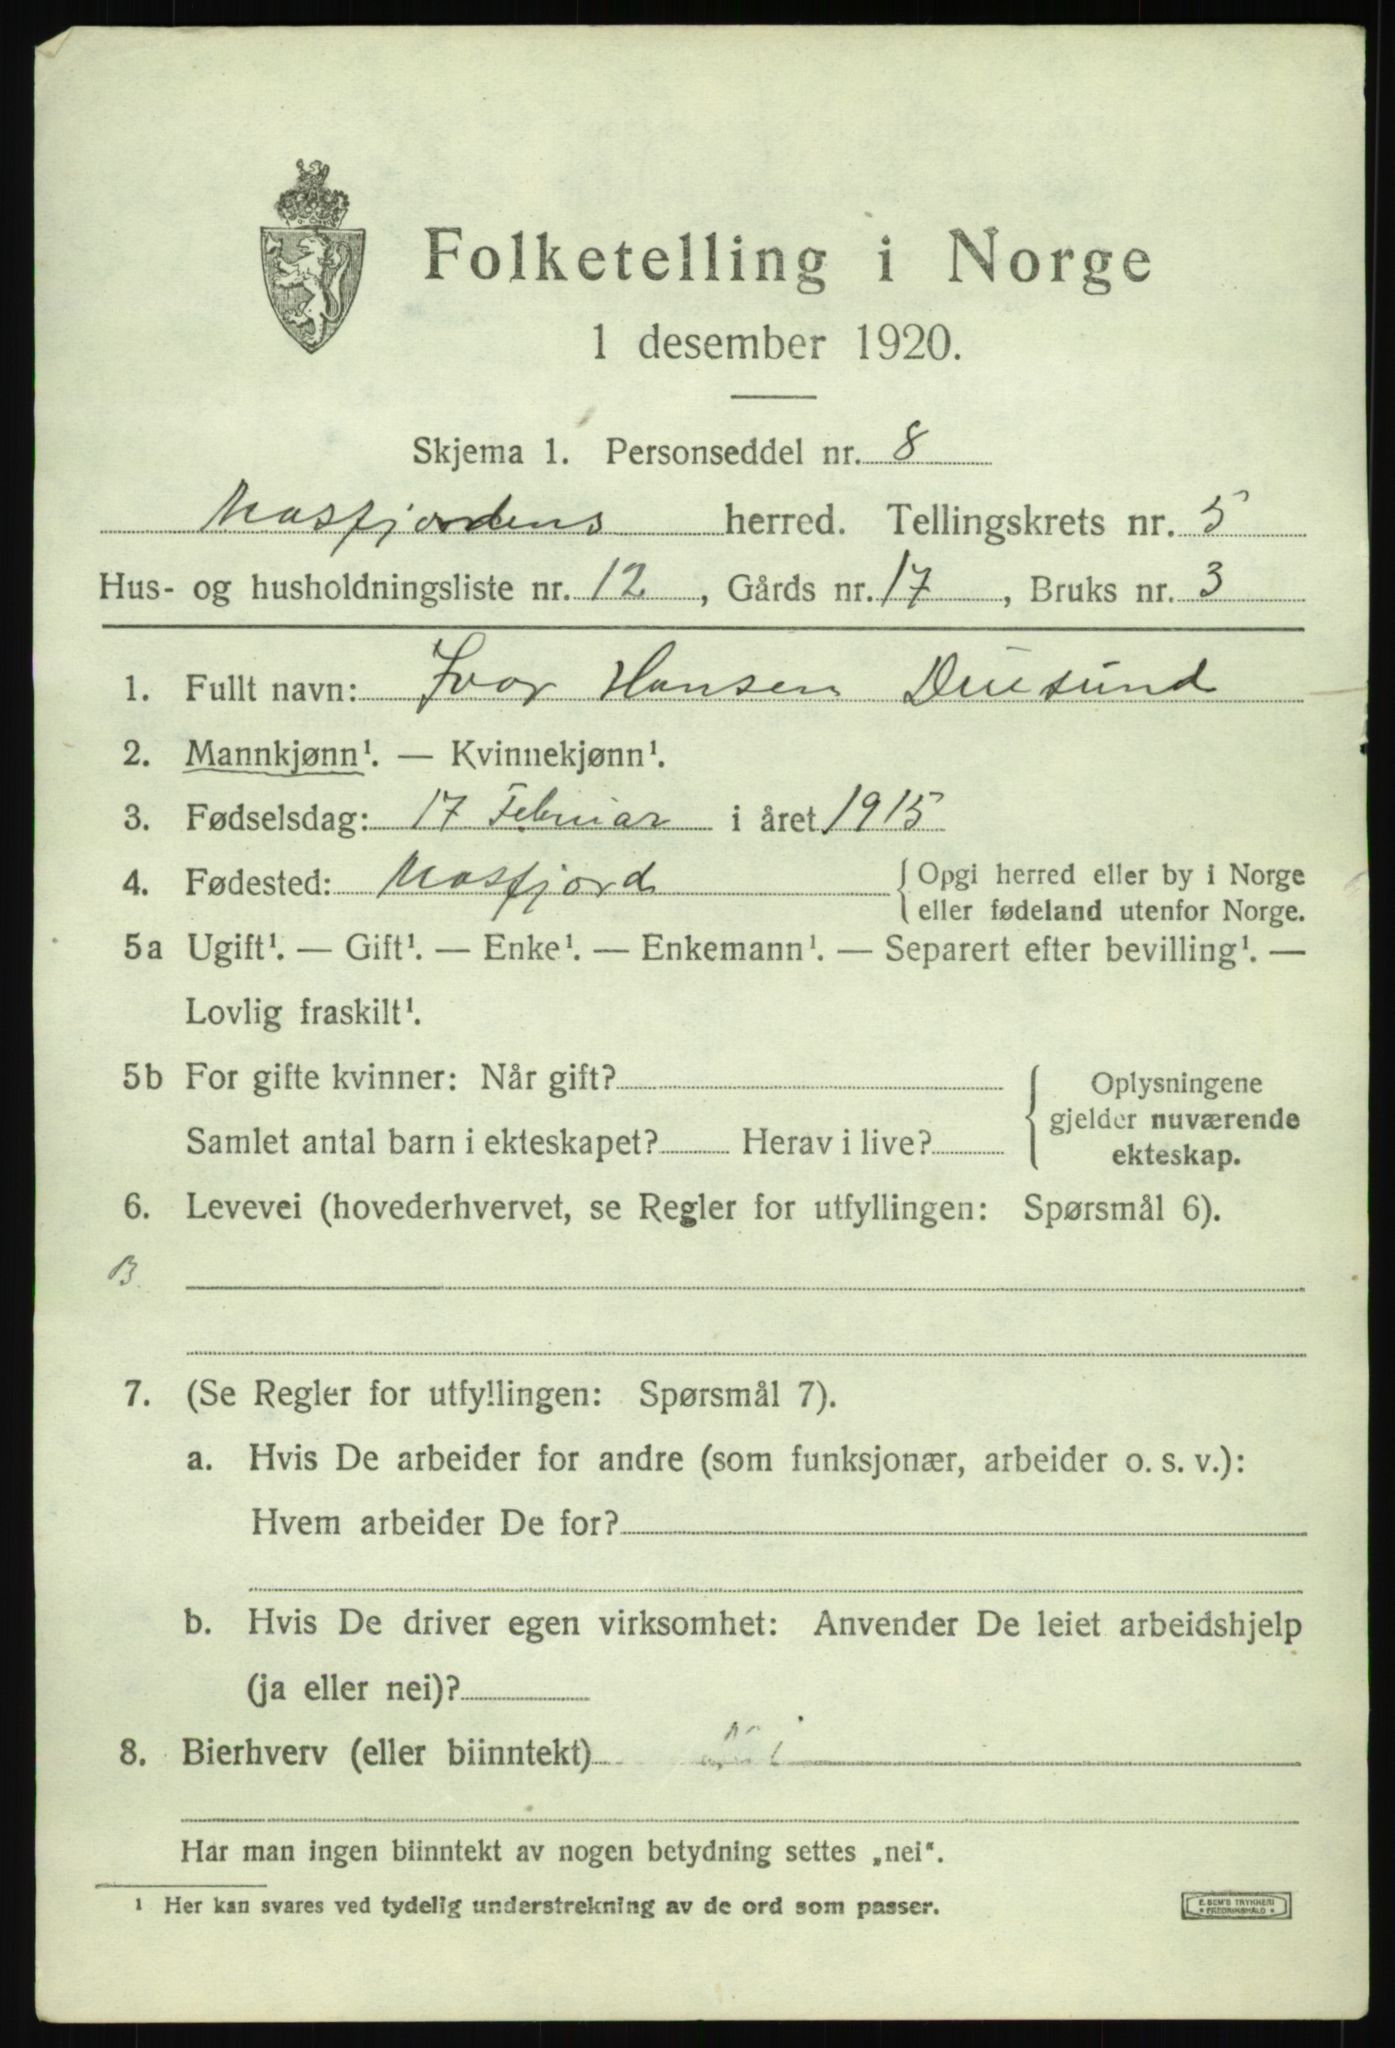 Folketelling i Norge
1 desember 1920.
Skjema 1. Personseddel nr. 8
Masfjordens herred. Tellingskrets nr. 5
Hus- og husholdningsliste nr. 12, Gårds nr. 17, Bruks nr. 3
1. Fullt navn: Ivar Hansen Duesund
2. Mannkjønn¹. — Kvinnekjønn¹.
3. Fødselsdag: 17 Februar i året 1915
4. Fødested: Masfjord { Opgi herred eller by i Norge
eller fødeland utenfor Norge.
5a Ugift¹. — Gift¹. — Enke¹. — Enkemann¹. — Separert efter bevilling¹. —
Lovlig fraskilt¹.
5b For gifte kvinner: Når gift? { Oplysningene
gjelder nuværende
Samlet antal barn i ekteskapet? Herav i live? ekteskap.
6. Levevei (hovederhvervet, se Regler for utfyllingen: Spørsmål 6).
B.
7. (Se Regler for utfyllingen: Spørsmål 7).
a. Hvis De arbeider for andre (som funksjonær, arbeider o. s. v.):
Hvem arbeider De for?
b. Hvis De driver egen virksomhet: Anvender De leiet arbeidshjelp
(ja eller nei)?
8. Bierhverv (eller biinntekt)
Har man ingen biinntekt av nogen betydning settes „nei“.
¹ Her kan svares ved tydelig understrekning av de ord som passer.
E. SEM'S TRYKKERI
* FREDRIKSHALD *